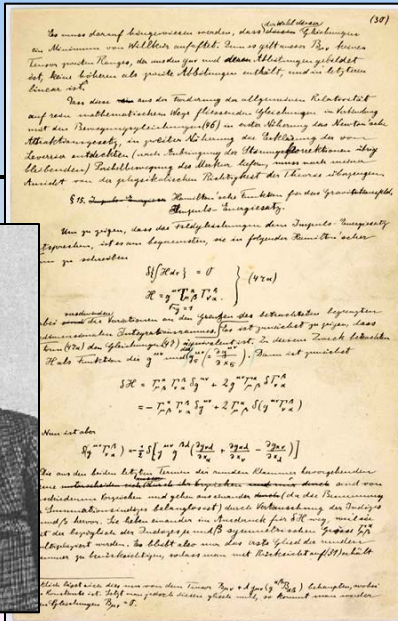 (30)
Es muss darauf hingewiesen werden, dass der Wahl dieser Gleichungen
ein Minimum von Willkür anhaftet. Denn es gibt ausser Bμν keinen
Tensor zweiten Ranges, der aus den gμν und deren Ableitungen gebildet
ist, keine höheren als zweite Ableitungen enthält, und in letzteren
linear ist.
Dass diese aus der Forderung der allgemeinen Relativität
auf rein mathematischem Wege fliessenden Gleichungen in Verbindung
mit den Bewegungsgleichungen (46) in erster Näherung das Newton'sche
Attraktionsgesetz, in zweiter Näherung die Erklärung der von
Leverrier entdeckten (nach Anbringung der Störungskorrektionen übrig
bleibenden) Perihelbewegung des Merkur liefern, muss nach meiner
Ansicht von der physikalischen Richtigkeit der Theorie überzeugen.
§ 15. Hamilton'sche Funktion für das Gravitationsfeld,
Impuls-Energiesatz.
Um zu zeigen, dass die Feldgleichungen dem Impuls-Energiesatz
entsprechen, ist es am bequemsten, sie in folgender Hamilton'scher
zu schreiben
δ{∫Hdτ} = 0
H = g^μν Γ^α_μβ Γ^β_να } (47a)
√-g = 1
verschwinden
bei die Variationen an den Grenzen des betrachteten begrenzten
Integrationsraumes. Es ist zunächst zu zeigen, dass
(47a) den Gleichungen (47) äquivalent ist. Zu diesem Zweck betrachten
H als Funktion der g^μν und der g^μν_σ (= ∂g^μν/∂x_σ). Dann ist zunächst
δH = Γ^α_μβ Γ^β_να δg^μν + 2g^μν Γ^α_μβ δΓ^β_να
= -Γ^α_μβ Γ^β_να δg^μν + 2Γ^α_μβ δ(g^μν Γ^β_να)
Nun ist aber
δ(g^μν Γ^β_να) = -1/2 δ[g^μν g^βλ (∂g_νλ/∂x_α + ∂g_αλ/∂x_ν - ∂g_αν/∂x_λ)]
Die aus den beiden letzten Termen der runden Klammer hervorgehenden
Terme sind von
Vorzeichen und gehen auseinander (da die Benennung
Summationsindizes belanglos ist) durch Vertauschung der Indizes
und β hervor. Sie heben einander im Ausdruck für δH weg, weil sie
mit der bezüglich der Indizes μ und β symmetrischen Grösse Γ^α_μβ
multipliziert werden. Es bleibt also nur das erste Glied der runden
zu berücksichtigen, sodass man mit Rücksicht auf (31) erhält
lässt sich dies nur von dem Tensor Bμν + λgμν(g^αβ Bαβ) behaupten, wobei
Konstante ist. Setzt man jedoch diesen gleich null, so kommt man wieder
Gleichungen Bμν = 0.